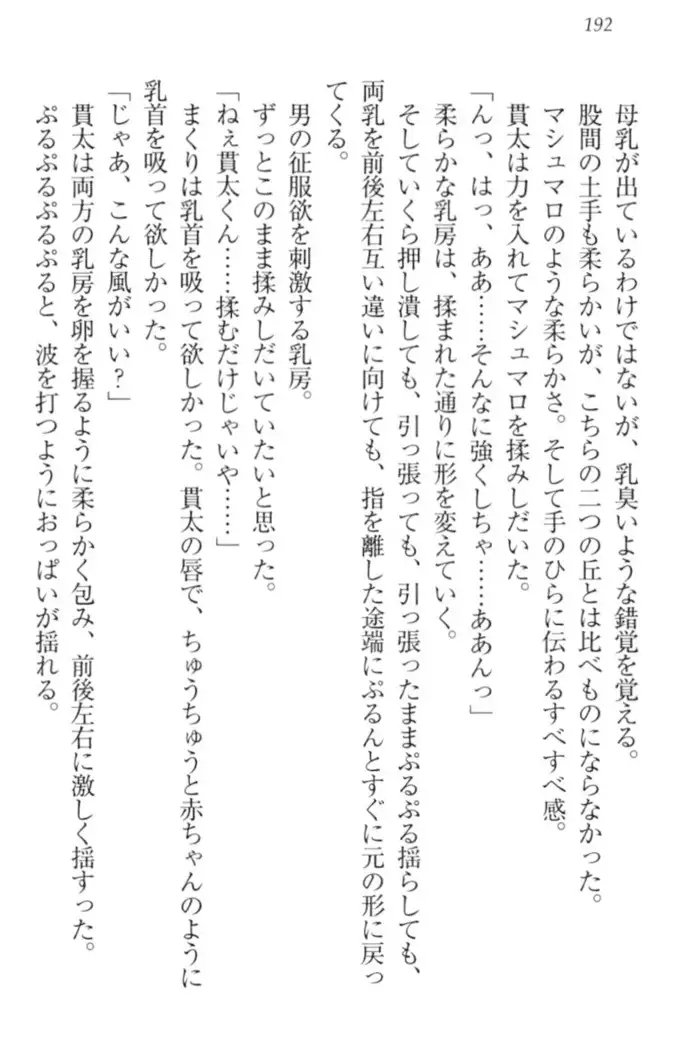 192
母乳が出ているわけではないが、乳臭いような錯覚を覚える。
股間の土手も柔らかいが、こちらの二つの丘とは比べものにならなかった。
マシュマロのような柔らかさ。そして手のひらに伝わるすべすべ感。
貫太は力を入れてマシュマロを揉みしだいた。
「んっ、はっ、ああ……そんなに強くしちゃ……ああんっ」
柔らかな乳房は、揉まれた通りに形を変えていく。
そしていくら押し潰しても、引っ張っても、引っ張ったままぷるぷる揺らしても、
両乳を前後左右互い違いに向けても、指を離した途端にぷるんとすぐに元の形に戻っ
てくる。
男の征服欲を刺激する乳房。
ずっとこのまま揉みしだいていたいと思った。
「ねぇ貫太くん……揉むだけじゃいや……」
まくりは乳首を吸って欲しかった。貫太の唇で、ちゅうちゅうと赤ちゃんのように
乳首を吸って欲しかった。
「じゃあ、こんな風がいい？」
貫太は両方の乳房を卵を握るように柔らかく包み、前後左右に激しく揺すった。
ぷるぷるぷるぷると、波を打つようにおっぱいが揺れる。